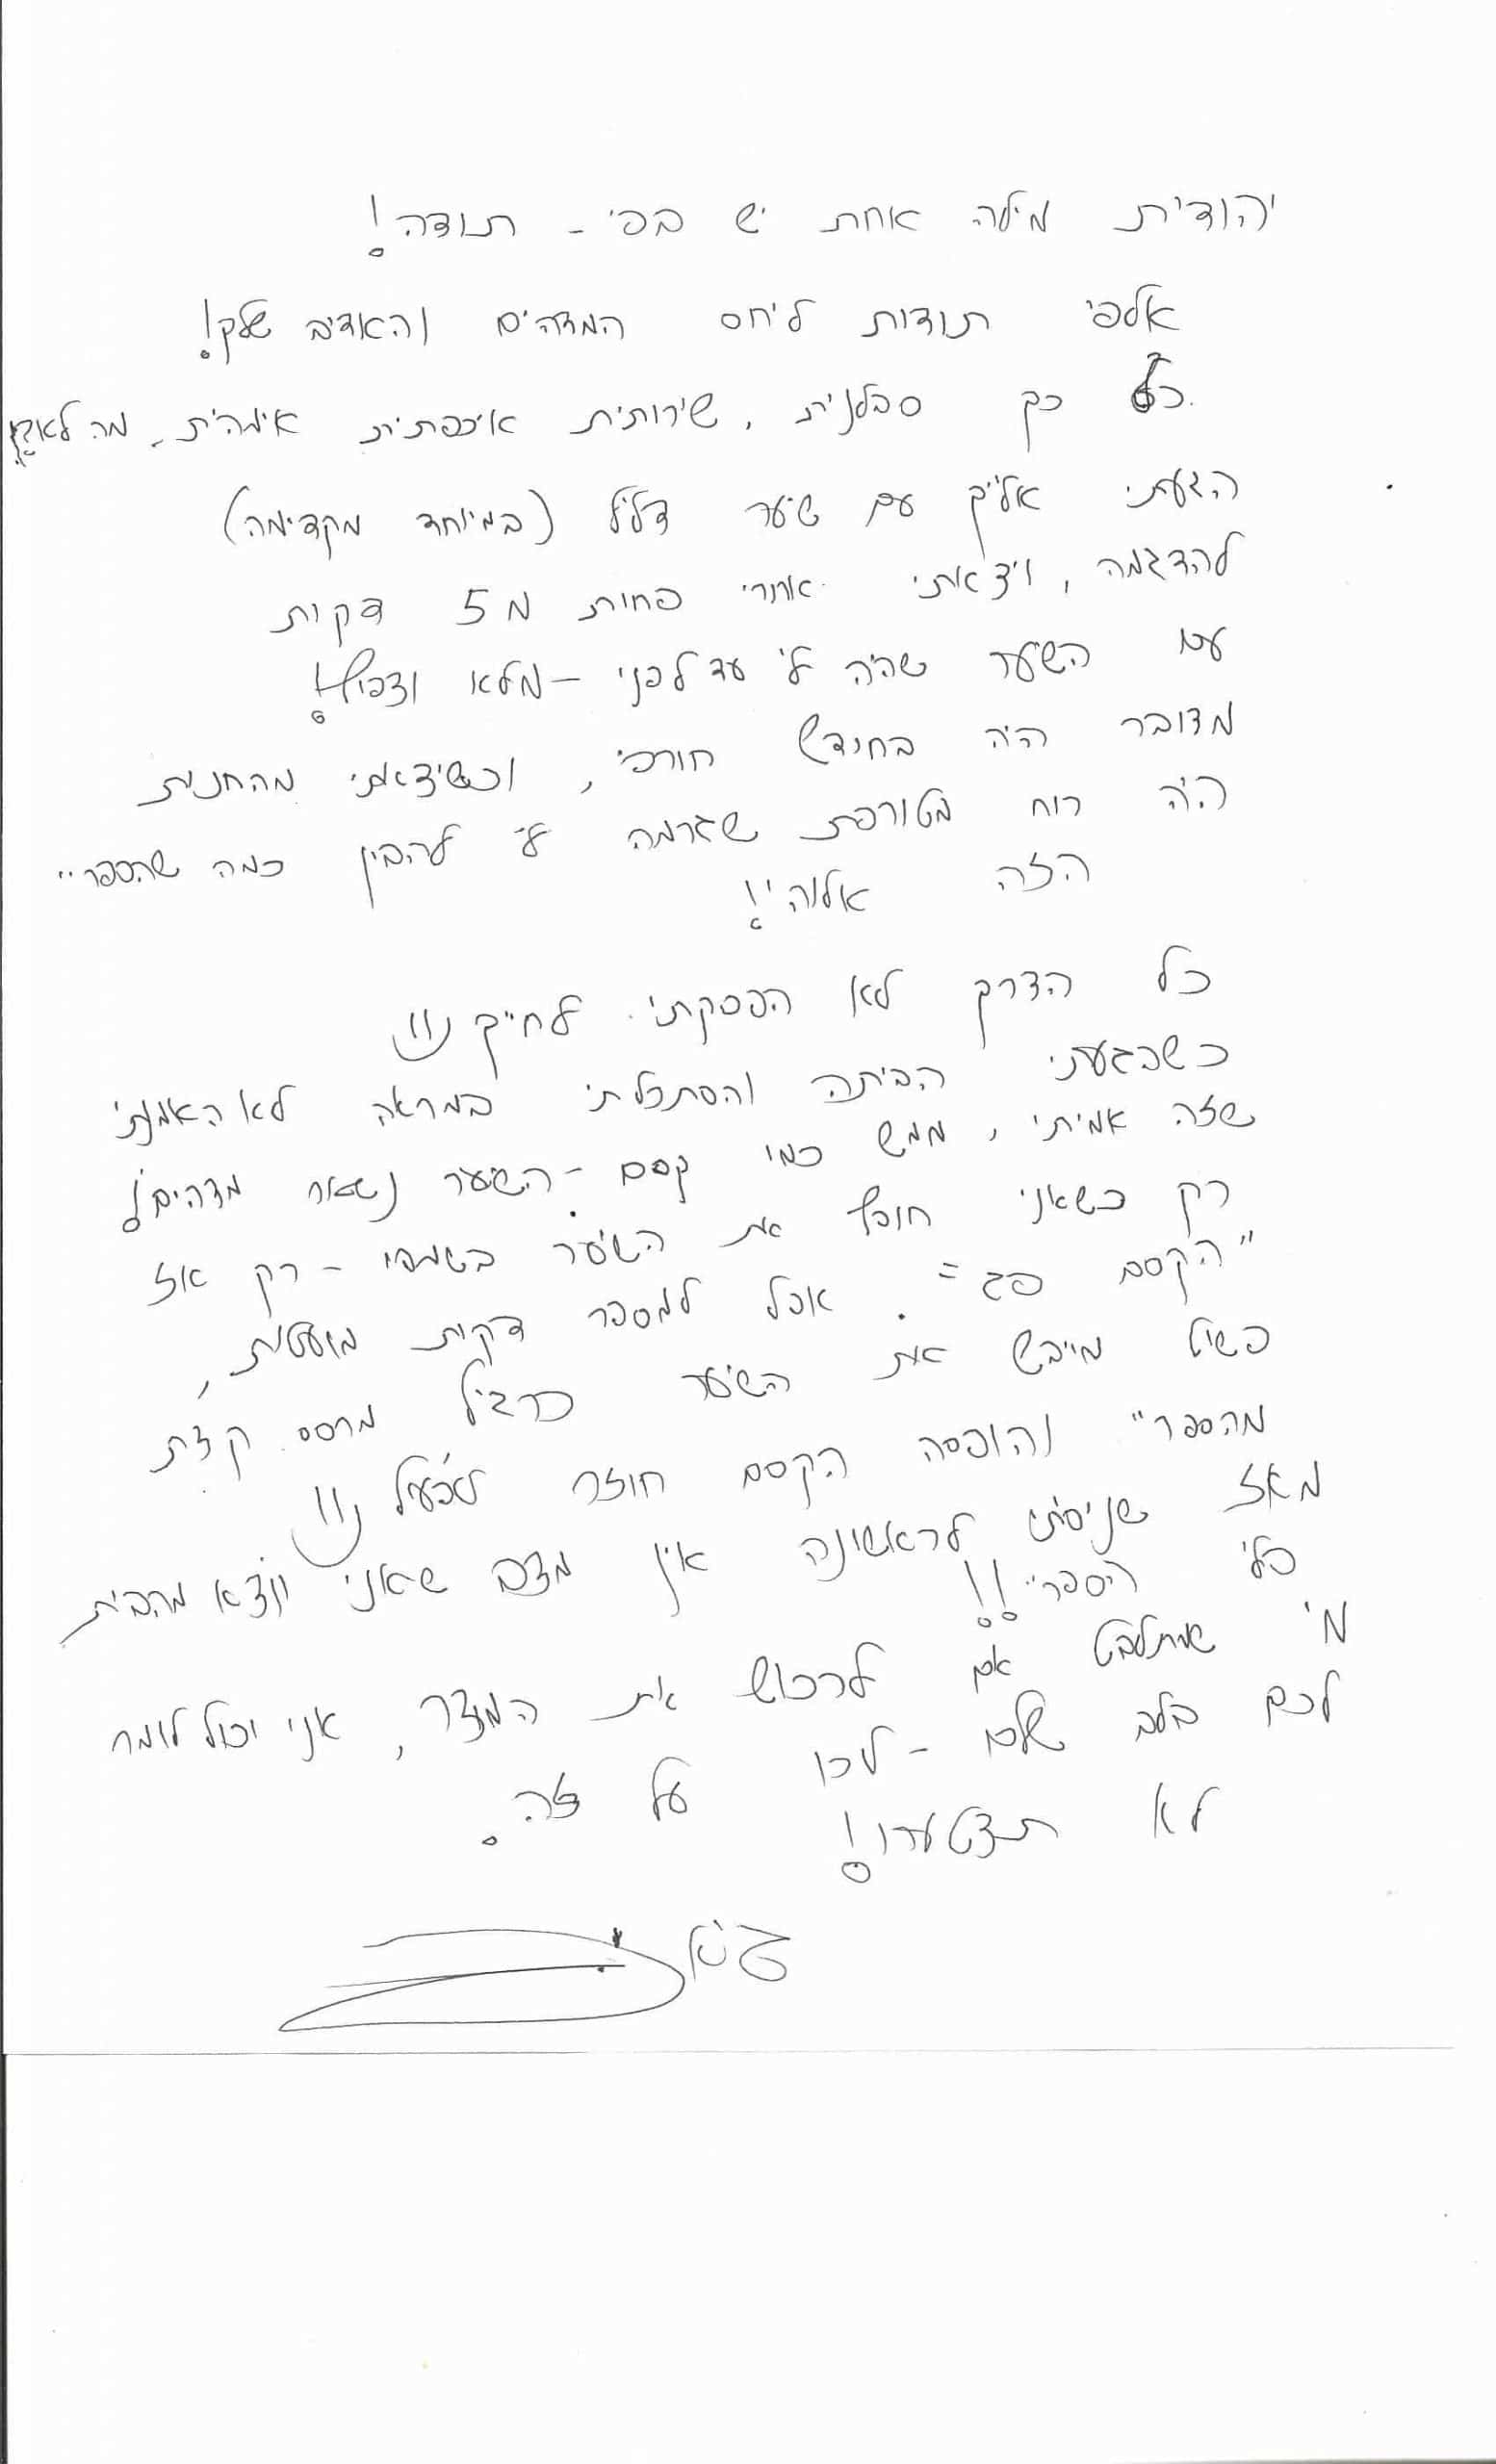 יהודית מילה אחת יש בפי - תודה!
אלפי תודות ליחס המדהים והאדיב שלך!
כל כך סבלנית, שירותית איכפתית אימהית, מה לא?!
הגעתי אלייך עם שיער דליל (במיוחד מקדימה)
להדגמה, ויצאתי אחרי פחות מ 5 דקות
עם השיער שהיה לי עד לפני - מלא וצפוף!
מדובר היה בחודש חורפי, וכשיצאתי מהחנות
היה רוח מטורפת שגרמה לי להבין כמה שהספריי
הזה אלוהי!
כל הדרך לא הפסקתי לחייך
כשהגעתי הביתה והסתכלתי במראה לא האמנתי
שזה אמיתי, ממש כמו קסם - השיער נשאר מדהים!
רק כשאני חופף את השיער בשמפו - רק אז
"הקסם פג". אבל למספר דקות מועטות,
כשיט מייבש את השיער כרגיל מרסס קצת
מהספריי והופסה הקסם חוזר לפעול
מאז שניסיתי לראשונה אין מצב שאני יוצא מהבית
בלי הספריי!!
מי שמתלבט אם לרכוש את המוצר, אני יכול לומר
לכם בלב שלם - לכו על זה.
לא תצטערו!